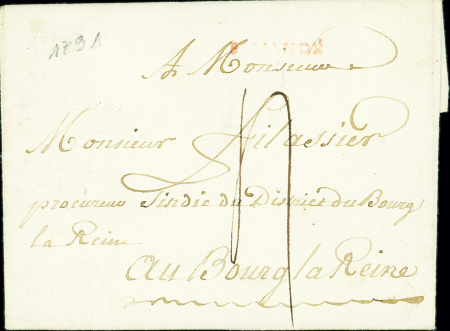 1791
A Monsieur
Monsieur Filassier
procureur Sindic du District du Bourg
la Reine
au Bourg la Reine